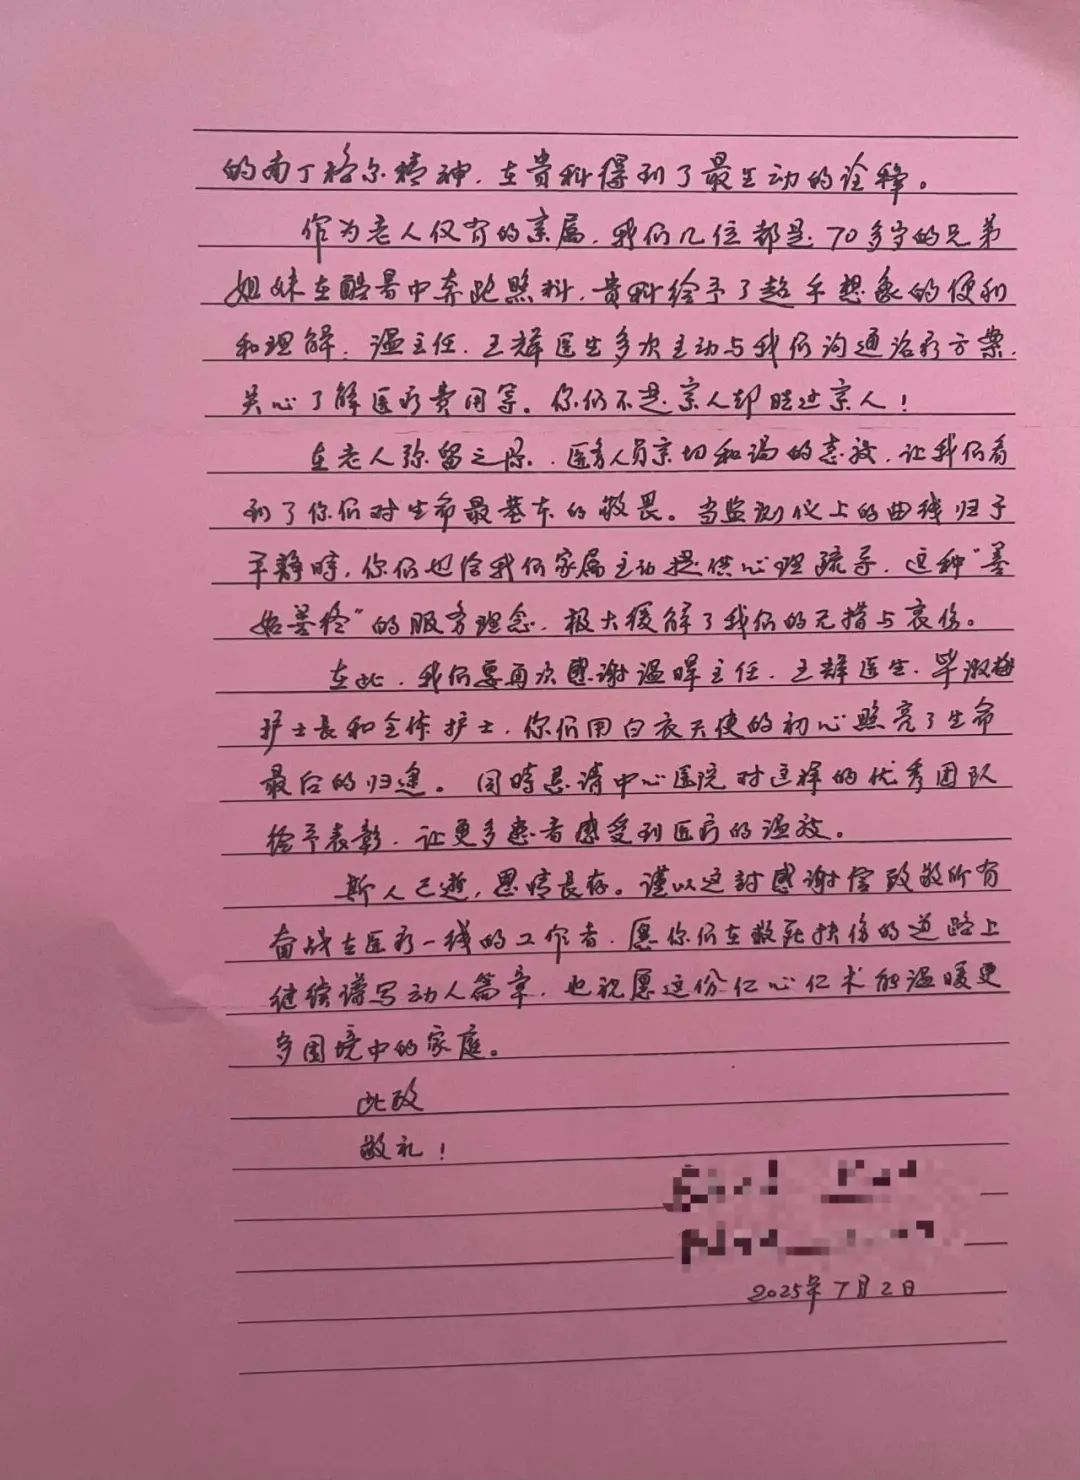 的南丁格尔精神，在贵科得到了最生动的诠释。
作为老人仅有的亲属，我们几位都是70多岁的兄弟
姐妹在酷暑中奔跑照料，贵科给予了超乎想象的便利
和理解，温主任、王辉医生多次主动与我们沟通治疗方案，
关心了解医疗费用等。你们不是亲人却胜过亲人！
在老人弥留之际，医务人员亲切和谒的态度，让我们看
到了你们对生命最基本的敬畏。当监测仪上的曲线归于
平静时，你们也给我们家属主动提供心理疏导，这种“善
始善终”的服务理念，极大缓解了我们的无措与哀伤。
在此，我们要再次感谢温晖主任、王辉医生、毕淑梅
护士长和全体护士，你们用白衣天使的初心照亮了生命
最后的归途。同时恳请中心医院对这样的优秀团队
给予表彰，让更多患者感受到医疗的温度。
斯人已逝，恩情长存。谨以这封感谢信致敬所有
奋战在医疗一线的工作者，愿你们在救死扶伤的道路上
继续谱写动人篇章，也祝愿这份仁心仁术能温暖更
多困境中的家庭。
此致
敬礼！
2025年7月2日